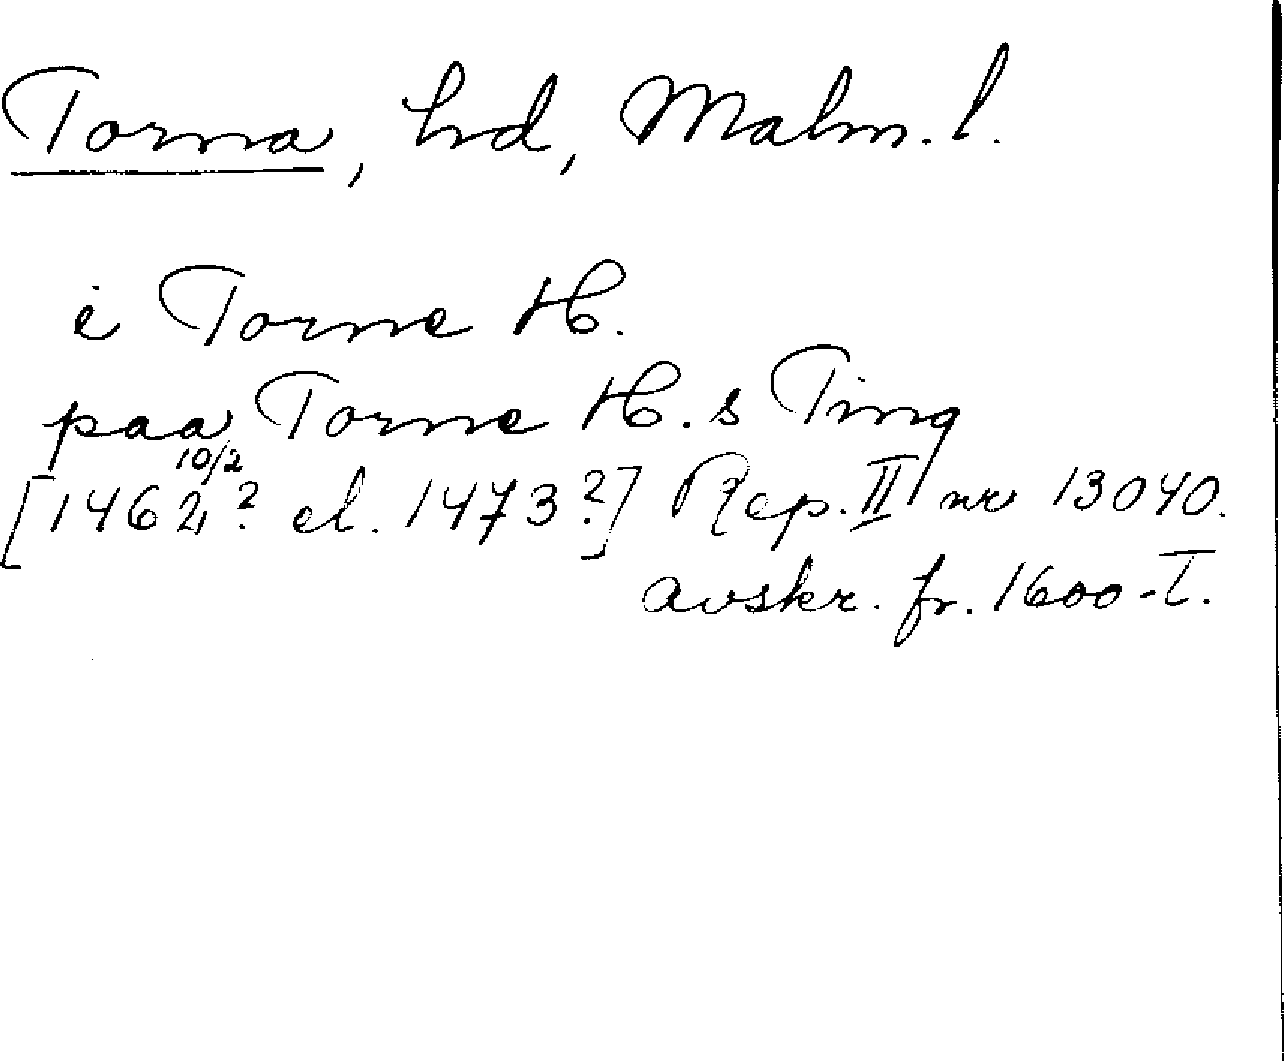 Torna, hd, Malm. l.
i Torne H.
paa Torne H.s Ting
10/2
[1462? el. 1473?] Rep. II nr 13040.
avskr. fr. 1600-T.